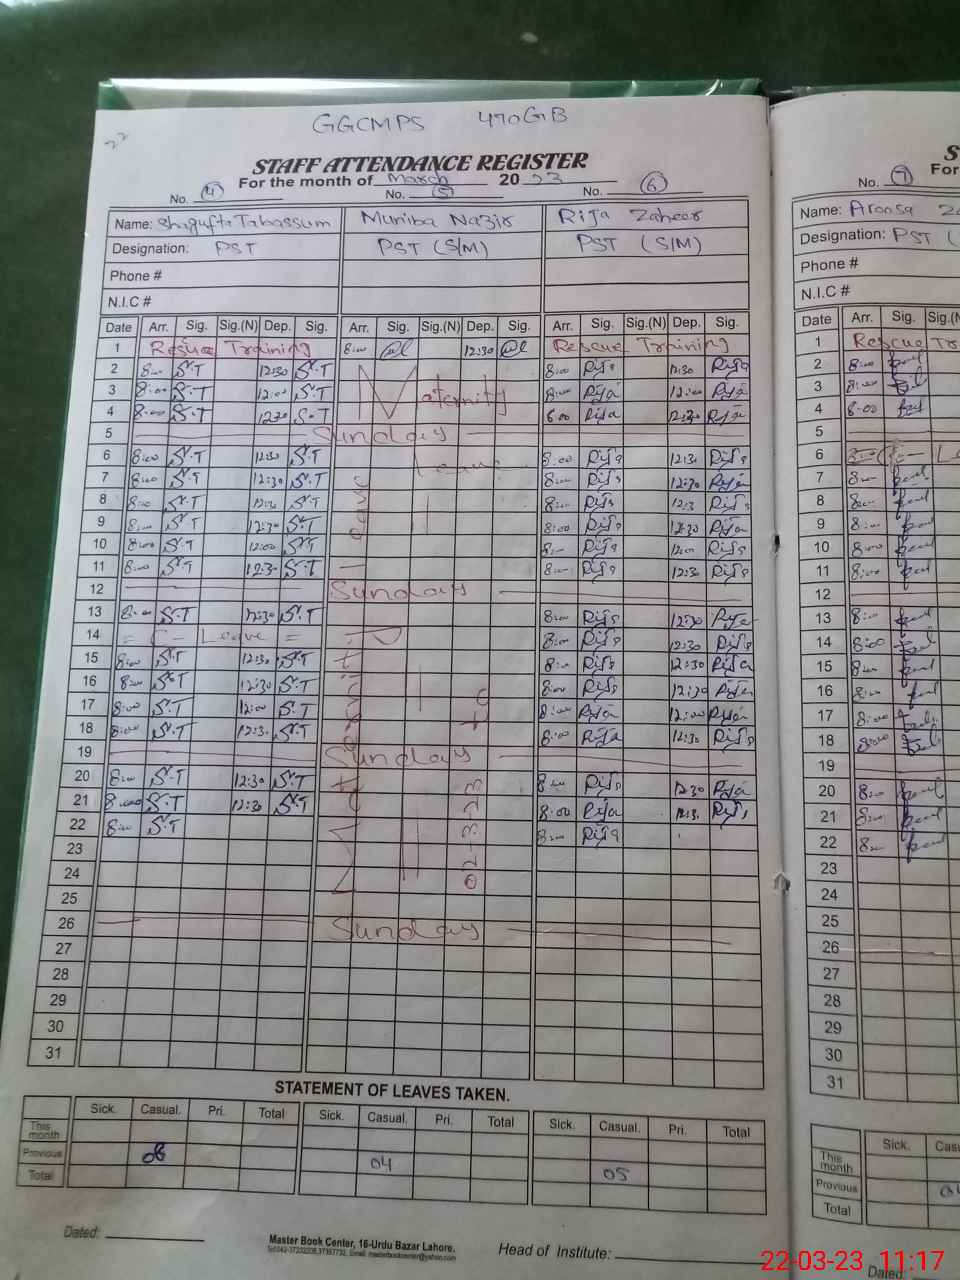 GGCMPS 470GB
STAFF ATTENDANCE REGISTER
For the month of March 2023
No. 4 No. 5 No. 6
Name: Shagufta Tabassum Muniba Nazir Rija Zaheer
Designation: PST PST (S/M) PST (S/M)
Phone #
N.I.C #
Date Arr. Sig. Sig.(N) Dep. Sig. Arr. Sig. Sig.(N) Dep. Sig. Arr. Sig. Sig.(N) Dep. Sig.
1 Rescue Training 8:00 12:30 Rescue Training
2 8:00 S.T 12:30 S.T Maternity 8:00 Rija 12:30 Rija
3 8:00 S.T 12:00 S.T 8:00 Rija 12:00 Rija
4 8:00 S.T 12:30 S.T 8:00 Rija 12:30 Rija
5 Sunday
6 8:00 S.T 12:30 S.T Leave 8:00 Rija 12:30 Rija
7 8:00 S.T 12:30 S.T 8:00 Rija 12:30 Rija
8 8:00 S.T 12:30 S.T 8:00 Rija 12:30 Rija
9 8:00 S.T 12:30 S.T 8:00 Rija 12:30 Rija
10 8:00 S.T 12:00 S.T 8:00 Rija 12:00 Rija
11 8:00 S.T 12:30 S.T 8:00 Rija 12:30 Rija
12 Sunday
13 8:00 S.T 12:30 S.T 8:00 Rija 12:30 Rija
14 = C - Leave = 8:00 Rija 12:30 Rija
15 8:00 S.T 12:30 S.T 8:00 Rija 12:30 Rija
16 8:00 S.T 12:30 S.T 8:00 Rija 12:30 Rija
17 8:00 S.T 12:00 S.T 8:00 Rija 12:00 Rija
18 8:00 S.T 12:30 S.T 8:00 Rija 12:30 Rija
19 Sunday
20 8:00 S.T 12:30 S.T 8:00 Rija 12:30 Rija
21 8:00 S.T 12:30 S.T 8:00 Rija 12:30 Rija
22 8:00 S.T 8:00 Rija
23
24
25
26 Sunday
27
28
29
30
31
Maternity Leave
02-3-23 to
STATEMENT OF LEAVES TAKEN.
Sick. Casual. Pri. Total Sick. Casual. Pri. Total Sick. Casual. Pri. Total
This month
Previous 08 04 05
Total
Dated:
Master Book Center, 16-Urdu Bazar Lahore.
Head of Institute:
S
For
No. 7
Name: Aroosa
Designation: PST
Phone #
N.I.C #
Date Arr. Sig. Sig.(N
1 Rescue Tr
2 8:00
3 8:00
4 8:00
5
6
7 8:00
8 8:00
9 8:00
10 8:00
11 8:00
12
13 8:00
14 8:00
15 8:00
16 8:00
17 8:00
18 8:00
19
20 8:00
21 8:00
22 8:00
23
24
25
26
27
28
29
30
31
Sick. Cas
This month
Previous
Total
Dated:
22-03-23 11:17